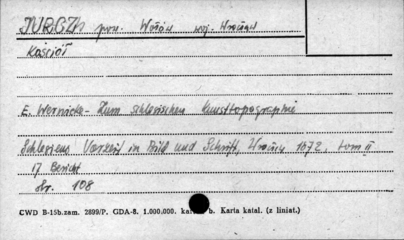 JURCZ pow. Wołów woj. Wrocław
Kościół
E. Wernicke - Zum schlesischen Kunsttopographie
Schlesiens Vorzeit in Bild und Schrift, Wrocław 1872, tom II
17 Bericht
str. 108
CWD B-15b.zam. 2899/P. GDA-8. 1.000.000. kar b. Karta katal. (z liniat.)